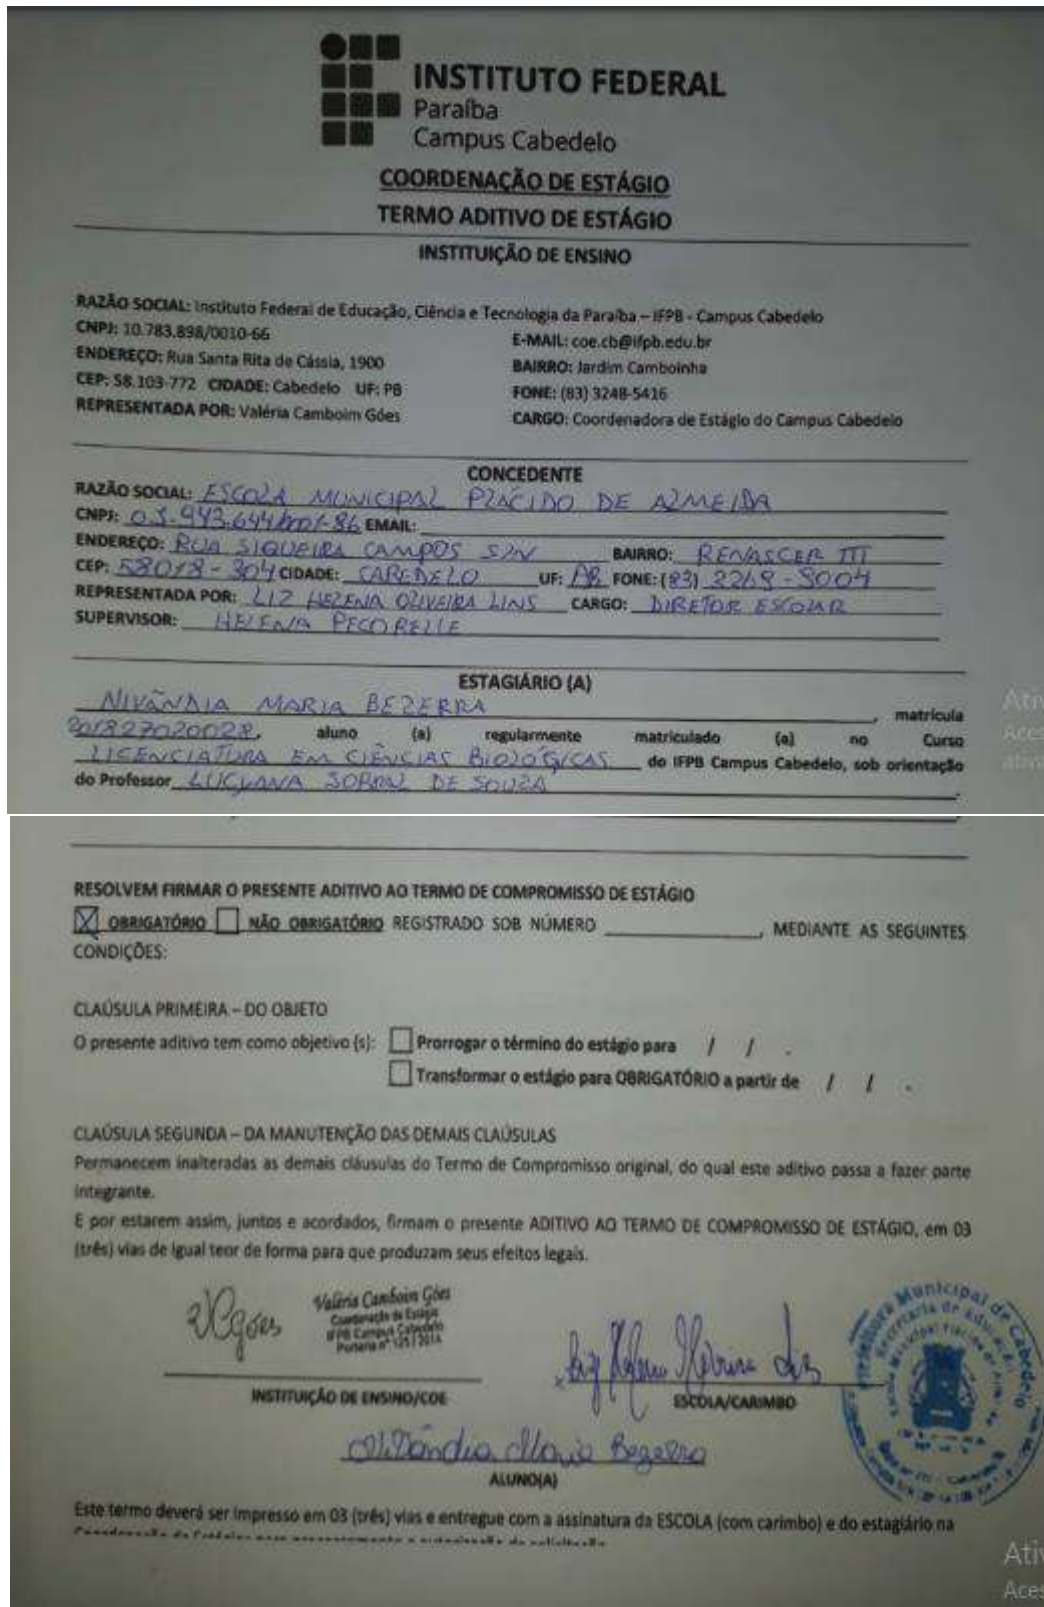 INSTITUTO FEDERAL
Paraíba
Campus Cabedelo
COORDENAÇÃO DE ESTÁGIO
TERMO ADITIVO DE ESTÁGIO
INSTITUIÇÃO DE ENSINO
RAZÃO SOCIAL: Instituto Federal de Educação, Ciência e Tecnologia da Paraíba – IFPB - Campus Cabedelo
CNPJ: 10.783.898/0010-66 E-MAIL: coe.cb@ifpb.edu.br
ENDEREÇO: Rua Santa Rita de Cássia, 1900 BAIRRO: Jardim Camboinha
CEP: 58.103-772 CIDADE: Cabedelo UF: PB FONE: (83) 3248-5416
REPRESENTADA POR: Valéria Camboim Góes CARGO: Coordenadora de Estágio do Campus Cabedelo
CONCEDENTE
RAZÃO SOCIAL: ESCOLA MUNICIPAL PLÁCIDO DE ALMEIDA
CNPJ: EMAIL:
ENDEREÇO: RUA SIQUEIRA CAMPOS S/N BAIRRO: RENASCER III
CEP: CIDADE: CABEDELO UF: PB FONE: (83)
REPRESENTADA POR: LIZ HELENA OLIVEIRA LINS CARGO: DIRETOR ESCOLAR
SUPERVISOR: HELENA PECORELLE
ESTAGIÁRIO (A)
NIVÂNDIA MARIA BEZERRA, matrícula
201827020028, aluno (a) regularmente matriculado (a) no Curso
LICENCIATURA EM CIÊNCIAS BIOLÓGICAS do IFPB Campus Cabedelo, sob orientação
do Professor LUCYANA SOBRAL DE SOUZA.
RESOLVEM FIRMAR O PRESENTE ADITIVO AO TERMO DE COMPROMISSO DE ESTÁGIO
X OBRIGATÓRIO NÃO OBRIGATÓRIO REGISTRADO SOB NÚMERO ____________, MEDIANTE AS SEGUINTES
CONDIÇÕES:
CLAÚSULA PRIMEIRA – DO OBJETO
O presente aditivo tem como objetivo (s): Prorrogar o término do estágio para / / .
Transformar o estágio para OBRIGATÓRIO a partir de / / .
CLAÚSULA SEGUNDA – DA MANUTENÇÃO DAS DEMAIS CLAÚSULAS
Permanecem inalteradas as demais cláusulas do Termo de Compromisso original, do qual este aditivo passa a fazer parte
integrante.
E por estarem assim, juntos e acordados, firmam o presente ADITIVO AO TERMO DE COMPROMISSO DE ESTÁGIO, em 03
(três) vias de igual teor de forma para que produzam seus efeitos legais.
VCgoes
Valéria Camboim Góes
Coordenação de Estágio
IFPB Campus Cabedelo
Portaria nº 125 / 2014
Liz Helena Oliveira Lins
Prefeitura Municipal de Cabedelo
Secretaria de Educação
INSTITUIÇÃO DE ENSINO/COE
ESCOLA/CARIMBO
Nivândia Maria Bezerra
ALUNO(A)
Este termo deverá ser impresso em 03 (três) vias e entregue com a assinatura da ESCOLA (com carimbo) e do estagiário na